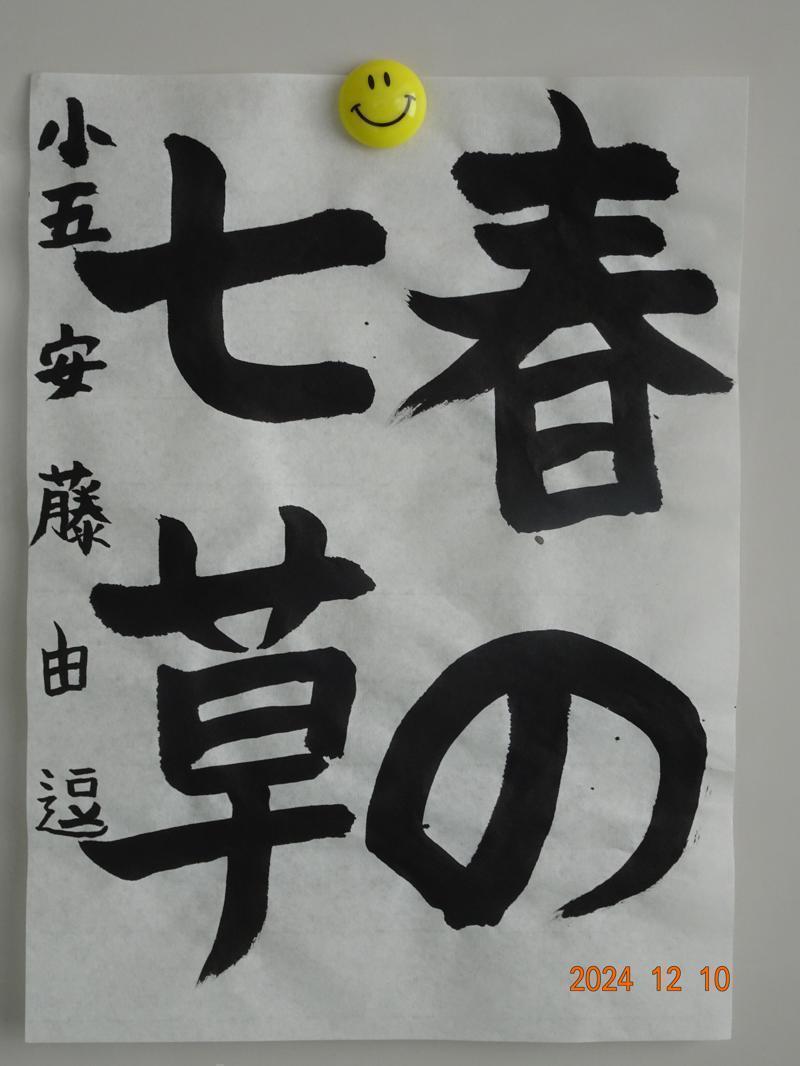 春の
七草
小五 安藤由逗
2024 12 10